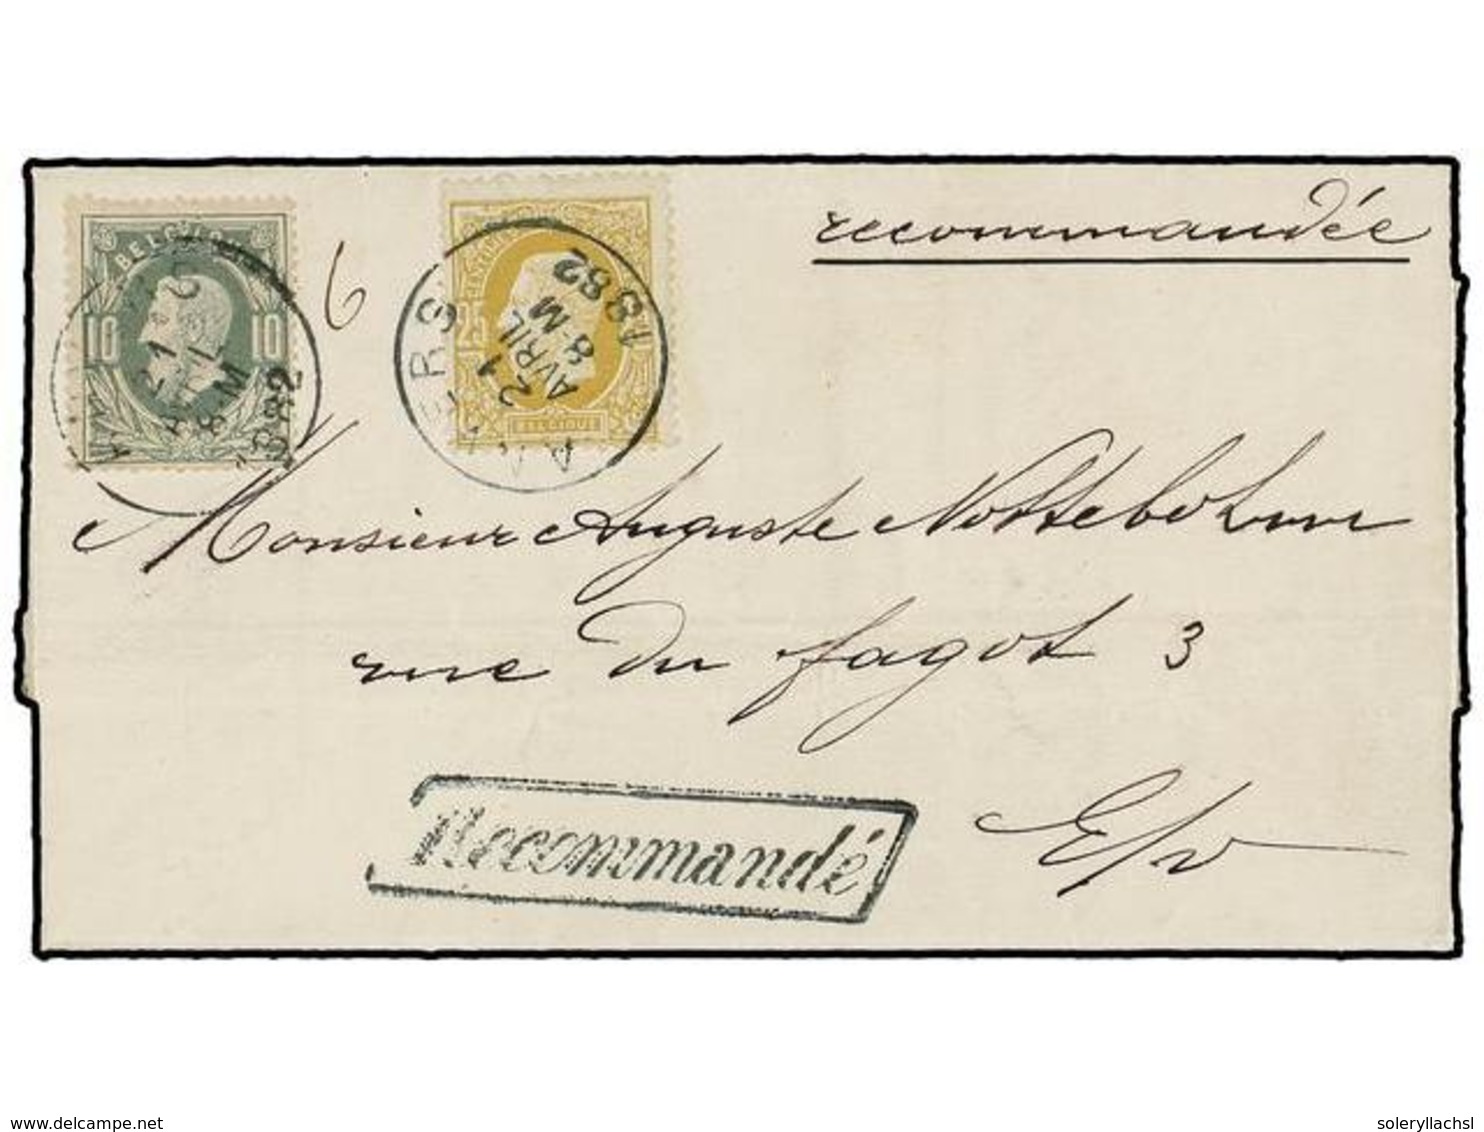 recommandée
BELGIQUE
10 10
6
25
BELGIQUE
ANVERS
21
AVRIL
8-M
1882
8 M
1882
Monsieur Auguste Nottebohm
rue du fagot 3
E/v
Recommandé
www.delcampe.net
soleryllachsl